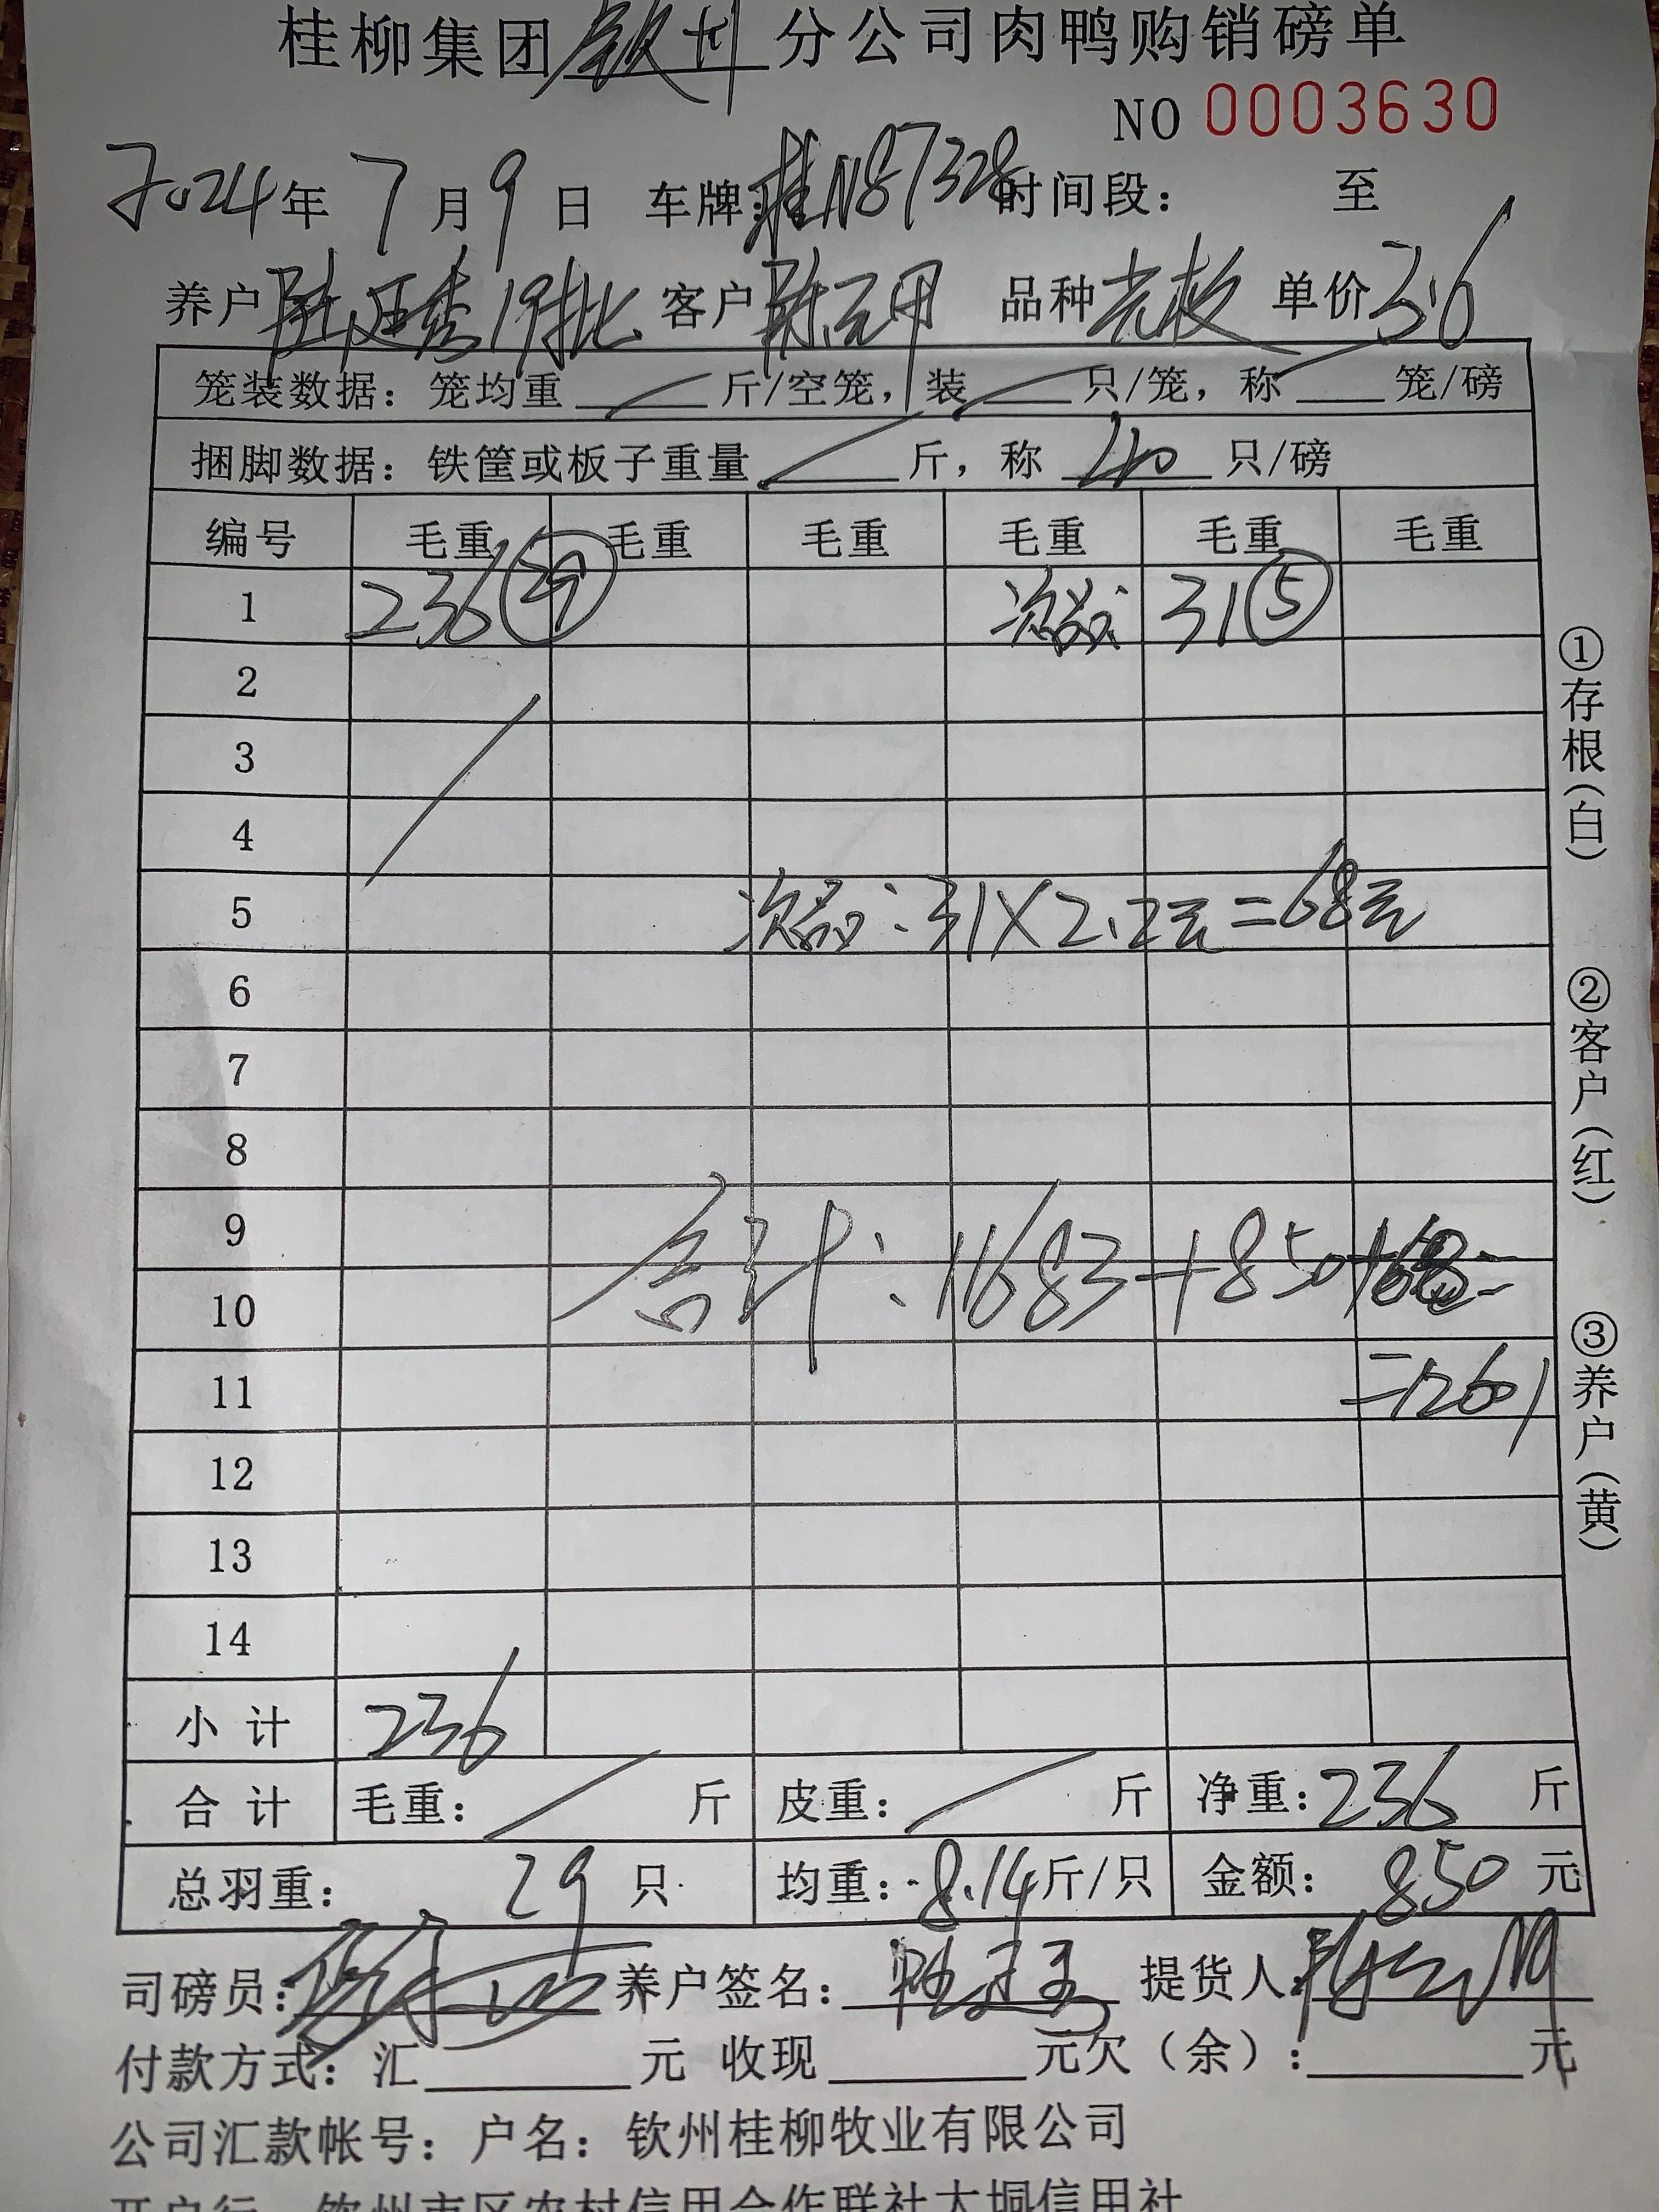 桂柳集团 钦州 分公司肉鸭购销磅单
NO 0003630
2024年 7月 9日 车牌:桂N87328 时间段: 至
养户 陆廷秀19批 客户 陈元用 品种 单价 3.6
笼装数据: 笼均重 斤/空笼, 装 只/笼, 称 笼/磅
捆脚数据: 铁筐或板子重量 斤, 称 40 只/磅
编号 毛重 毛重 毛重 毛重 毛重 毛重
1 236 29 次品: 31 5
2
3
4
5 次品: 31×2.2元=68元
6
7
8
9
10 合计: 11683+850+68=
11 =12601
12
13
14
小计 236
合计 毛重: 斤 皮重: 斤 净重: 236 斤
总羽重: 29 只 均重: 8.14斤/只 金额: 850元
司磅员: 养户签名: 提货人:
付款方式: 汇 元 收现 元欠(余): 元
公司汇款帐号: 户名: 钦州桂柳牧业有限公司
开户行 钦州市区农村信用合作联社大垌信用社
①存根(白)
②客户(红)
③养户(黄)